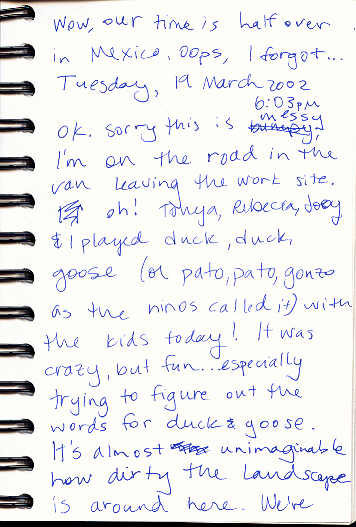 Wow, our time is half over
in Mexico. Oops, I forgot...
Tuesday, 19 March 2002
6:03pm
messy
OK. sorry this is bumpy,
I'm on the road in the
van leaving the work site.
oh! Tanya, Rebecca, Joey
& I played duck, duck,
goose (or pato, pato, gonzo
as the ninos called it) with
the kids today! It was
crazy, but fun...especially
trying to figure out the
words for duck & goose.
It's almost unimaginable
how dirty the landscape
is around here. We're